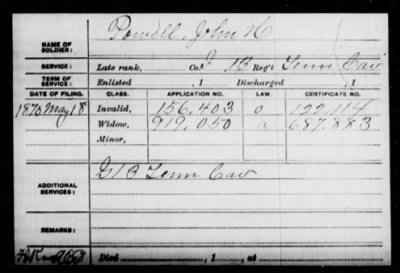 Powell, John H
NAME OF SOLDIER:
SERVICE: Late rank, Co. I 13 Reg't Tenn Cav
TERM OF SERVICE: Enlisted , 1 Discharged , 1
DATE OF FILING. CLASS. APPLICATION NO. LAW. CERTIFICATE NO.
1870 May 18 Invalid, 156,403 o 122,114
Widow, 919,050 a 687,883
Minor,
ADDITIONAL SERVICES: Tenn Cav
REMARKS:
Died , 1 , at